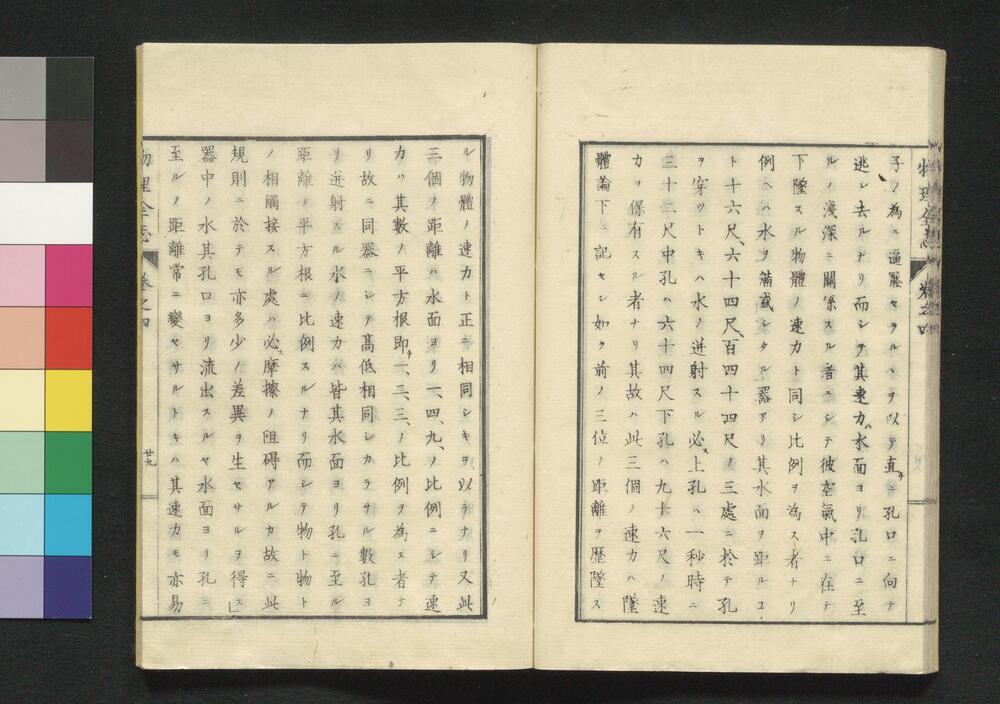 物理全志 卷之四
子ノ為ニ逼壓セラルヽヲ以テ直チニ孔口ニ向テ
逃レ去ルナリ而シテ其速力ハ水面ヨリ孔口ニ至
ルノ淺深ニ關係スル者ニシテ彼空氣中ニ在テ
下墜スル物體ノ速力ト同シ比例ヲ為ス者ナリ
例ヘハ水ヲ滿盛シタル器アリ其水面ヲ距ルコ
ト十六尺、六十四尺、百四十四尺ノ三處ニ於テ孔
ヲ穿ツトキハ水ノ迸射スル必ス上孔ハ一秒時ニ
三十二尺中孔ハ六十四尺下孔ハ九十六尺ノ速
力ヲ保有スル者ナリ其故ハ此三個ノ速力ハ墜
體論下ニ記セシ如ク前ノ三位ノ距離ヲ歷墜ス
ル物體ノ速力ト正ニ相同シキヲ以テナリ又此
三個ノ距離ハ水面ヨリ一、四、九、ノ比例ニシテ速
力ハ其數ノ平方根即チ一、二、三、ノ比例ヲ為ス者ナ
リ故ニ同器ニシテ高低相同シカラサル數孔ヨ
リ迸射スル水ノ速力ハ皆其水面ヨリ孔ニ至ル
距離ノ平方根ニ比例スルナリ而シテ物ト物ト
ノ相觸接スル處ハ必ス摩擦ノ阻碍アルカ故ニ此
規則ニ於テモ亦多少ノ差異ヲ生セサルヲ得ス」
器中ノ水其孔口ヨリ流出スルヤ水面ヨリ孔ニ
至ルノ距離常ニ變セサルトキハ其速力モ亦易
物理全志 卷之四 廿九